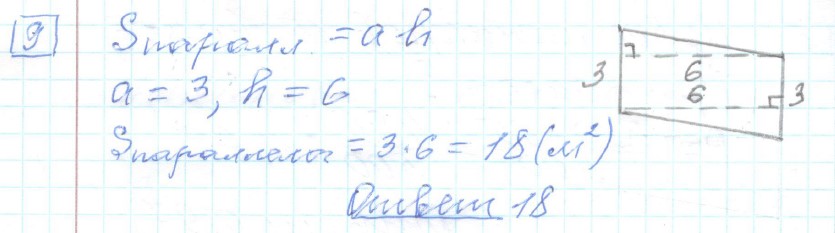 9
Sпаралл. = a h
a = 3, h = 6
Sпараллелог = 3·6 = 18 (м²)
Ответ 18
3
6
6
3